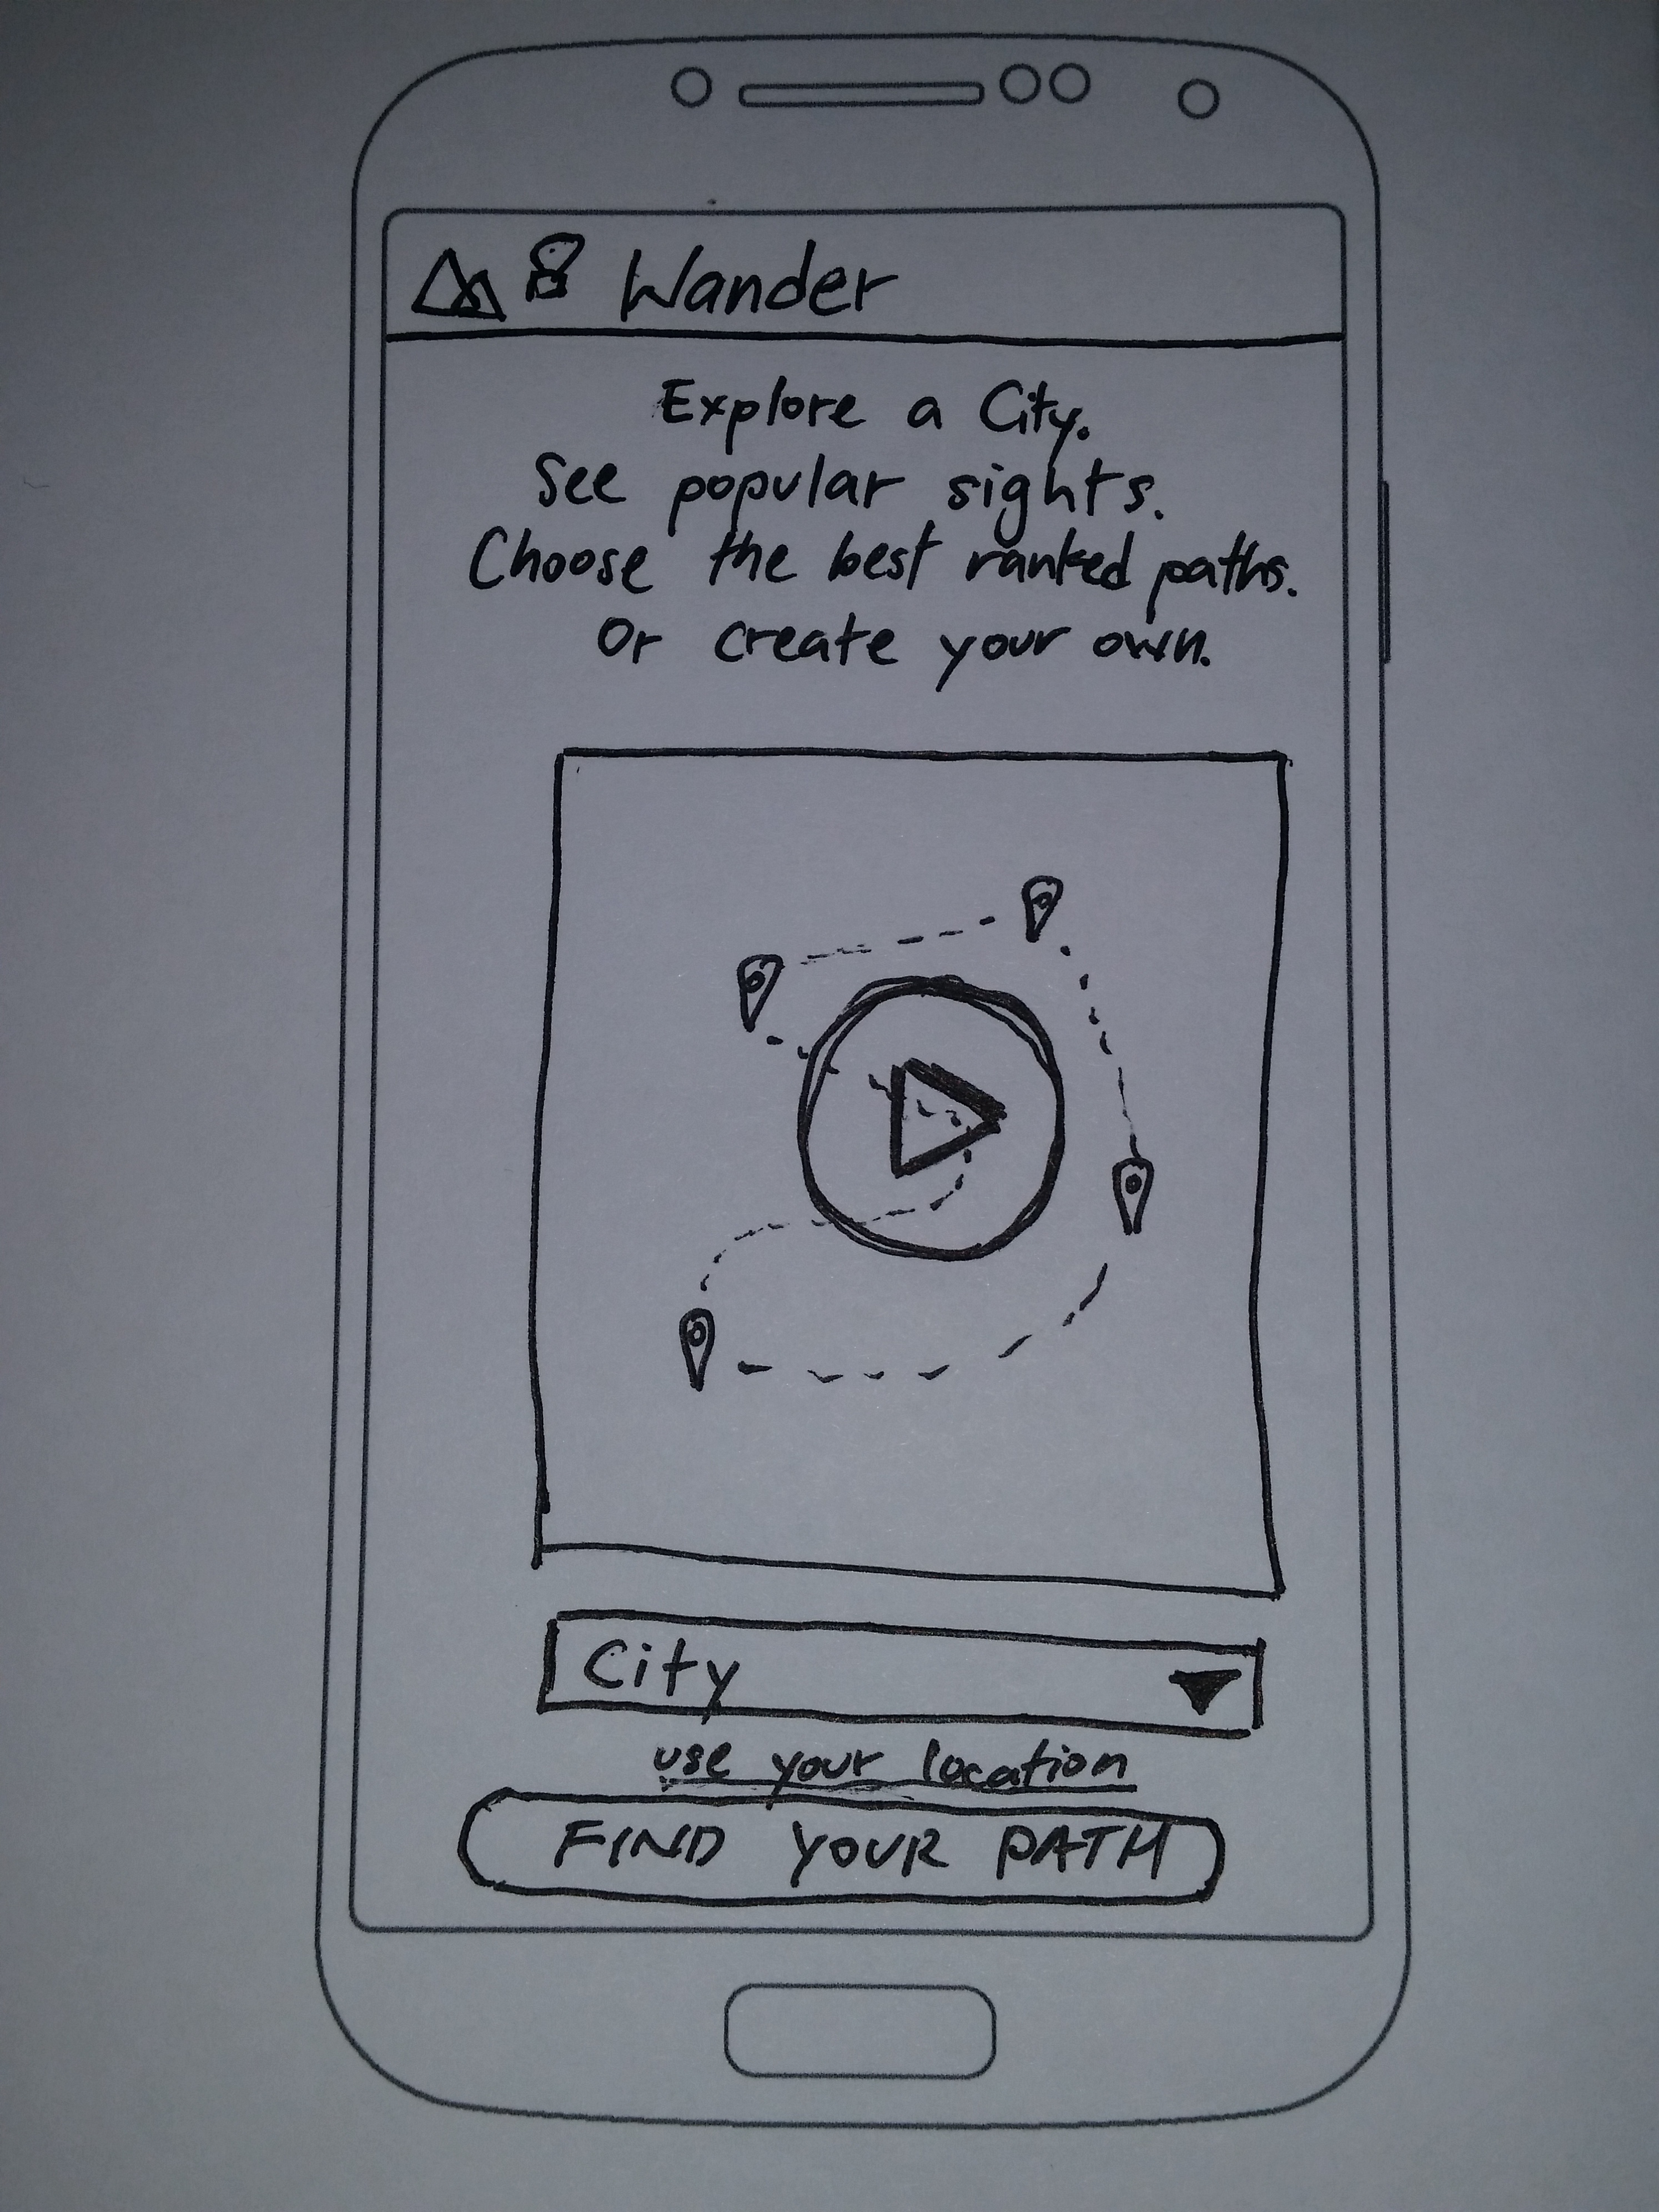 Wander
Explore a City.
See popular sights.
Choose the best ranked paths.
Or create your own.
City
use your location
FIND YOUR PATH